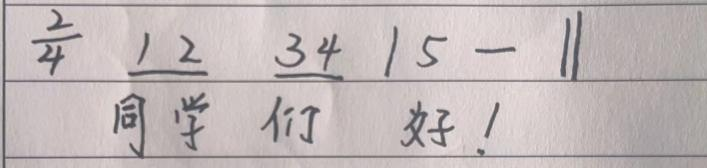 2/4 1 2 3 4 | 5 — ‖
同学们好！